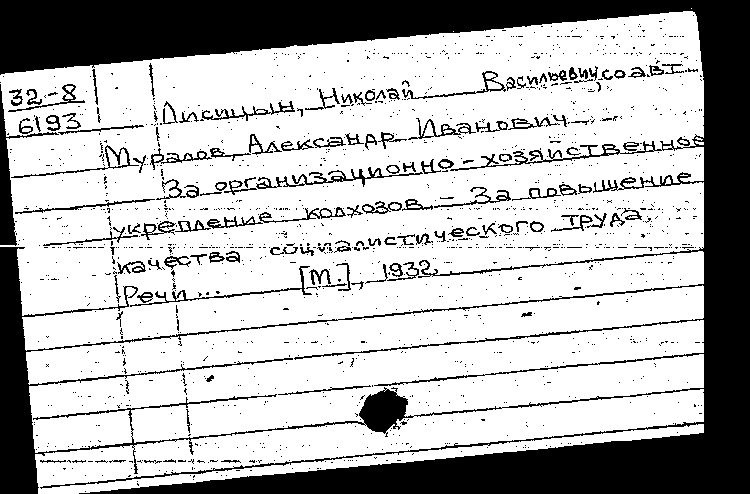 32-8
6193
Лисицын, Николай Васильевич, соавт.
Муралов, Александр Иванович.
За организационно-хозяйственное
укрепление колхозов. - За повышение
качества социалистического труда.
Речи... [М.], 1932.